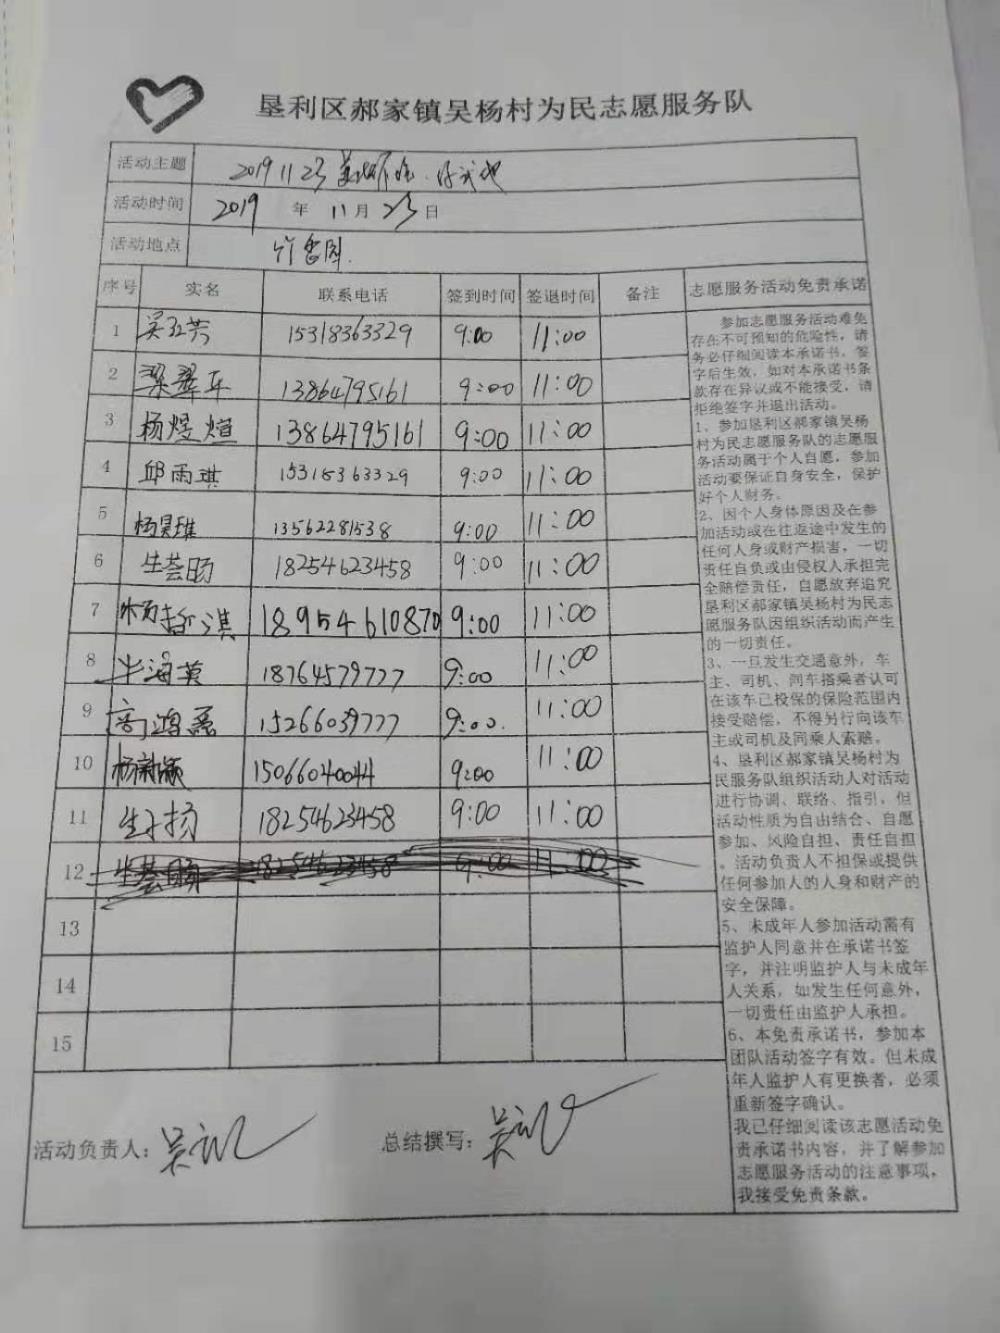 垦利区郝家镇吴杨村为民志愿服务队
活动主题 2019 11 23
活动时间 2019 年 11 月 23 日
活动地点
序号 实名 联系电话 签到时间 签退时间 备注 志愿服务活动免责承诺
1 吴红芳 15318363329 9:00 11:00
2 梁翠平 13864795161 9:00 11:00
3 杨煜煊 13864795161 9:00 11:00
4 邱雨琪 15318363329 9:00 11:00
5 杨昊琪 13562281538 9:00 11:00
6 生芸旸 18254623458 9:00 11:00
7 杨哲淇 18954610870 9:00 11:00
8 牛海英 18764579777 9:00 11:00
9 高鸿磊 15266039777 9:00. 11:00
10 杨新颖 15066040044 9:00 11:00
11 生子扬 18254623458 9:00 11:00
12 生芸旸 18254623458 9:00 11:00
13
14
15
参加志愿服务活动难免
存在不可预知的危险性，请
务必仔细阅读本承诺书，签
字后生效，如对本承诺书条
款存在异议或不能接受，请
拒绝签字并退出活动。
1、参加垦利区郝家镇吴杨
村为民志愿服务队的志愿服
务活动属于个人自愿，参加
活动要保证自身安全，保护
好个人财务。
2、因个人身体原因及在参
加活动或在往返途中发生的
任何人身或财产损害，一切
责任自负或由侵权人承担完
全赔偿责任，自愿放弃追究
垦利区郝家镇吴杨村为民志
愿服务队因组织活动而产生
的一切责任。
3、一旦发生交通意外，车
主、司机、同车搭乘者认可
在该车已投保的保险范围内
接受赔偿，不得另行向该车
主或司机及同乘人索赔。
4、垦利区郝家镇吴杨村为
民服务队组织活动人对活动
进行协调、联络、指引，但
活动性质为自由结合、自愿
参加、风险自担、责任自担
。活动负责人不担保或提供
任何参加人的人身和财产的
安全保障。
5、未成年人参加活动需有
监护人同意并在承诺书签
字，并注明监护人与未成年
人关系，如发生任何意外，
一切责任由监护人承担。
6、本免责承诺书，参加本
团队活动签字有效。但未成
年人监护人有更换者，必须
重新签字确认。
我已仔细阅读该志愿活动免
责承诺书内容，并了解参加
志愿服务活动的注意事项，
我接受免责条款。
活动负责人： 总结撰写：